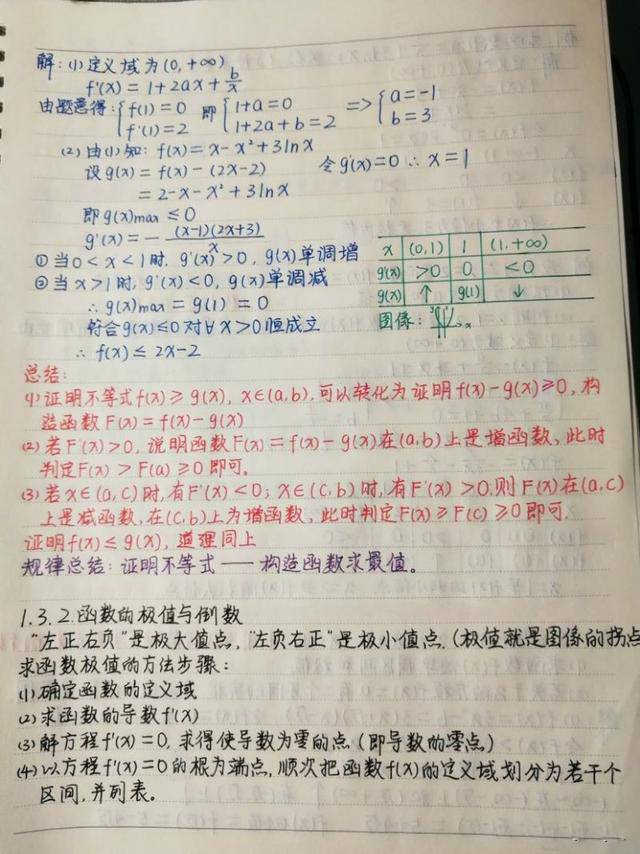 解:(1)定义域为(0,+∞)
f'(x)=1+2ax+b/x
由题意得:{f(1)=0 f'(1)=2 即{1+a=0 1+2a+b=2 => {a=-1 b=3
(2)由(1)知:f(x)=x-x²+3lnx
设g(x)=f(x)-(2x-2) 令g'(x)=0 ∴x=1
=2-x-x²+3lnx
即g(x)max≤0
g'(x)=-(x-1)(2x+3)/x
①当0<x<1时,g'(x)>0,g(x)单调增
②当x>1时,g'(x)<0,g(x)单调减
∴g(x)max=g(1)=0
符合g(x)≤0对∀x>0恒成立
∴f(x)≤2x-2
x (0,1) 1 (1,+∞)
g'(x) >0 0 <0
g(x) ↑ g(1) ↓
图像:
总结:
(1)证明不等式f(x)≥g(x),x∈(a,b),可以转化为证明f(x)-g(x)≥0,构
造函数F(x)=f(x)-g(x)
(2)若F'(x)>0,说明函数F(x)=f(x)-g(x)在(a,b)上是增函数,此时
判定F(x)>F(a)≥0即可.
(3)若x∈(a,c)时,有F'(x)<0;x∈(c,b)时,有F'(x)>0,则F(x)在(a,c)
上是减函数,在(c,b)上为增函数,此时判定F(x)≥F(c)≥0即可.
证明f(x)≤g(x),道理同上
规律总结:证明不等式——构造函数求最值。
1.3.2.函数的极值与倒数
"左正右负"是极大值点,"左负右正"是极小值点.(极值就是图像的拐点
求函数极值的方法步骤:
(1)确定函数的定义域
(2)求函数的导数f'(x)
(3)解方程f'(x)=0,求得使导数为零的点(即导数的零点)
(4)以方程f'(x)=0的根为端点,顺次把函数f(x)的定义域划分为若干个
区间,并列表。